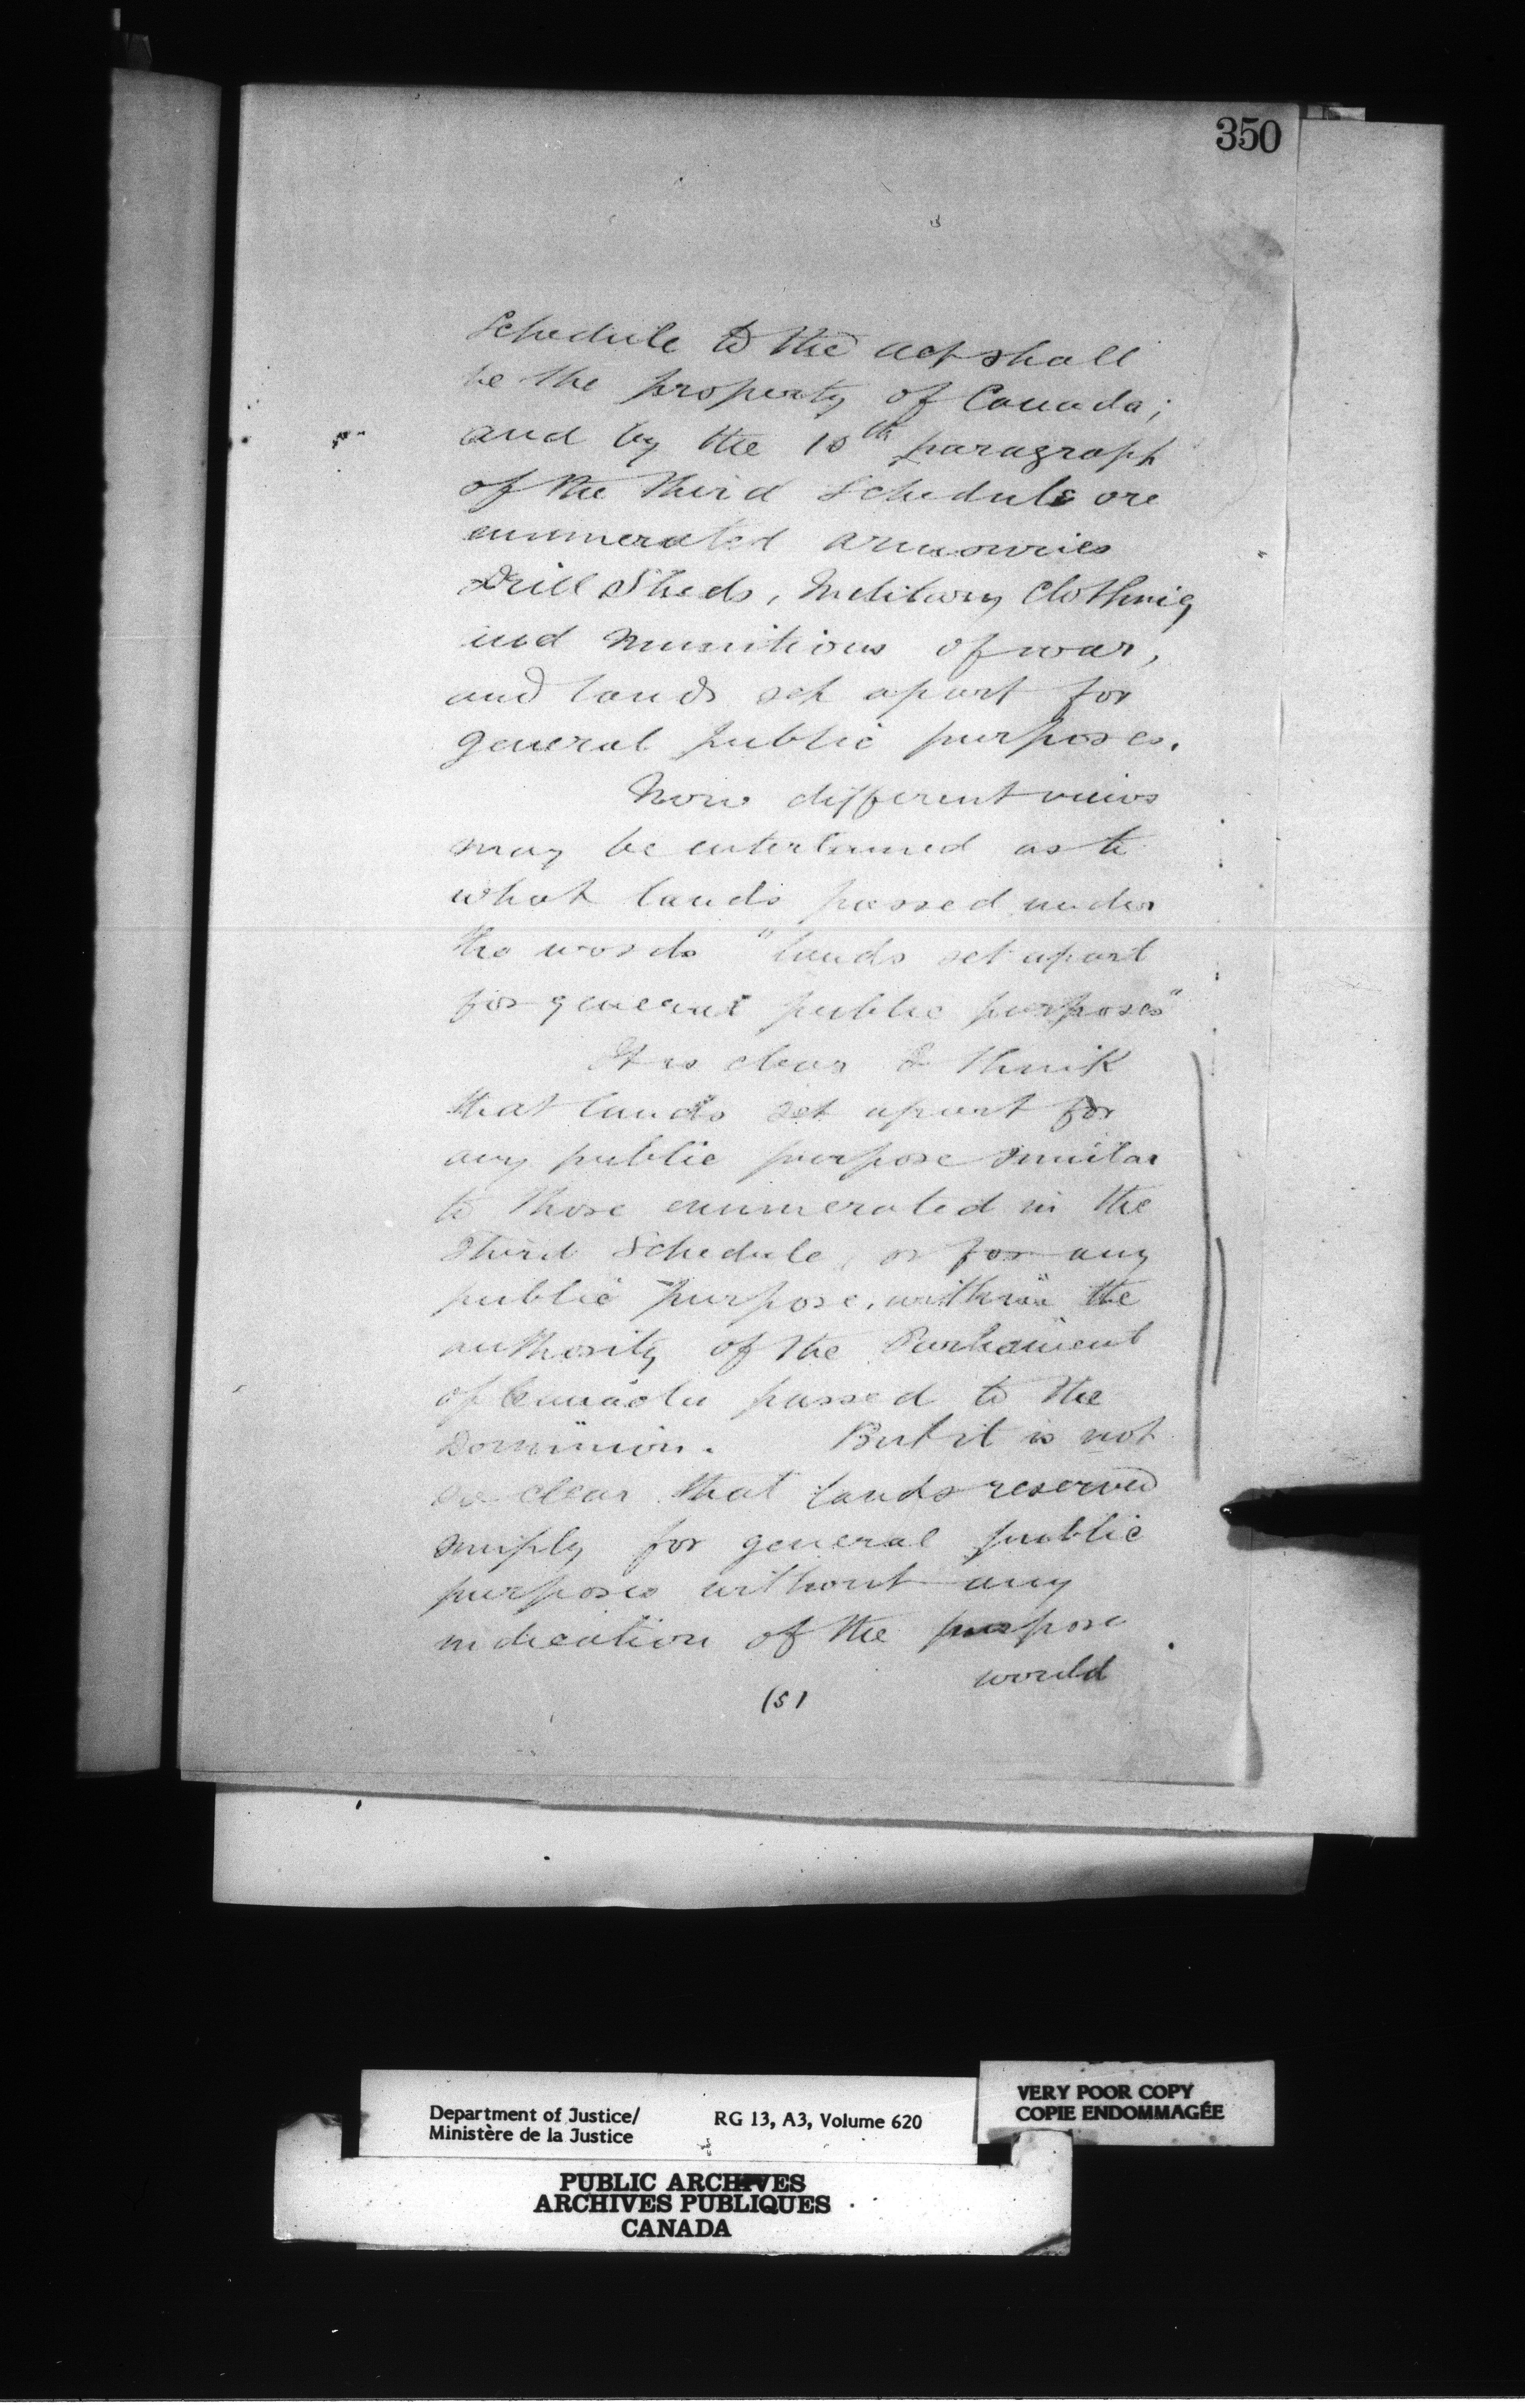 350
Schedule to the act shall
be the property of Canada;
and by the 10th paragraph
of the third Schedule are
enumerated armouries
Drill Sheds, Military Clothing
and munitions of war,
and lands set apart for
general public purposes.
Now different views
may be entertained as to
what lands passed under
the words "lands set apart
for general public purposes"
It is clear I think
that lands set apart for
any public purpose similar
to those enumerated in the
third Schedule, or for any
public purpose, within the
authority of the Parliament
of Canada passed to the
Dominion. But it is not
so clear that lands reserved
simply for general public
purposes without any
indication of the purpose
would
(5)
Department of Justice/
Ministère de la Justice
RG 13, A3, Volume 620
VERY POOR COPY
COPIE ENDOMMAGÉE
PUBLIC ARCHIVES
ARCHIVES PUBLIQUES
CANADA